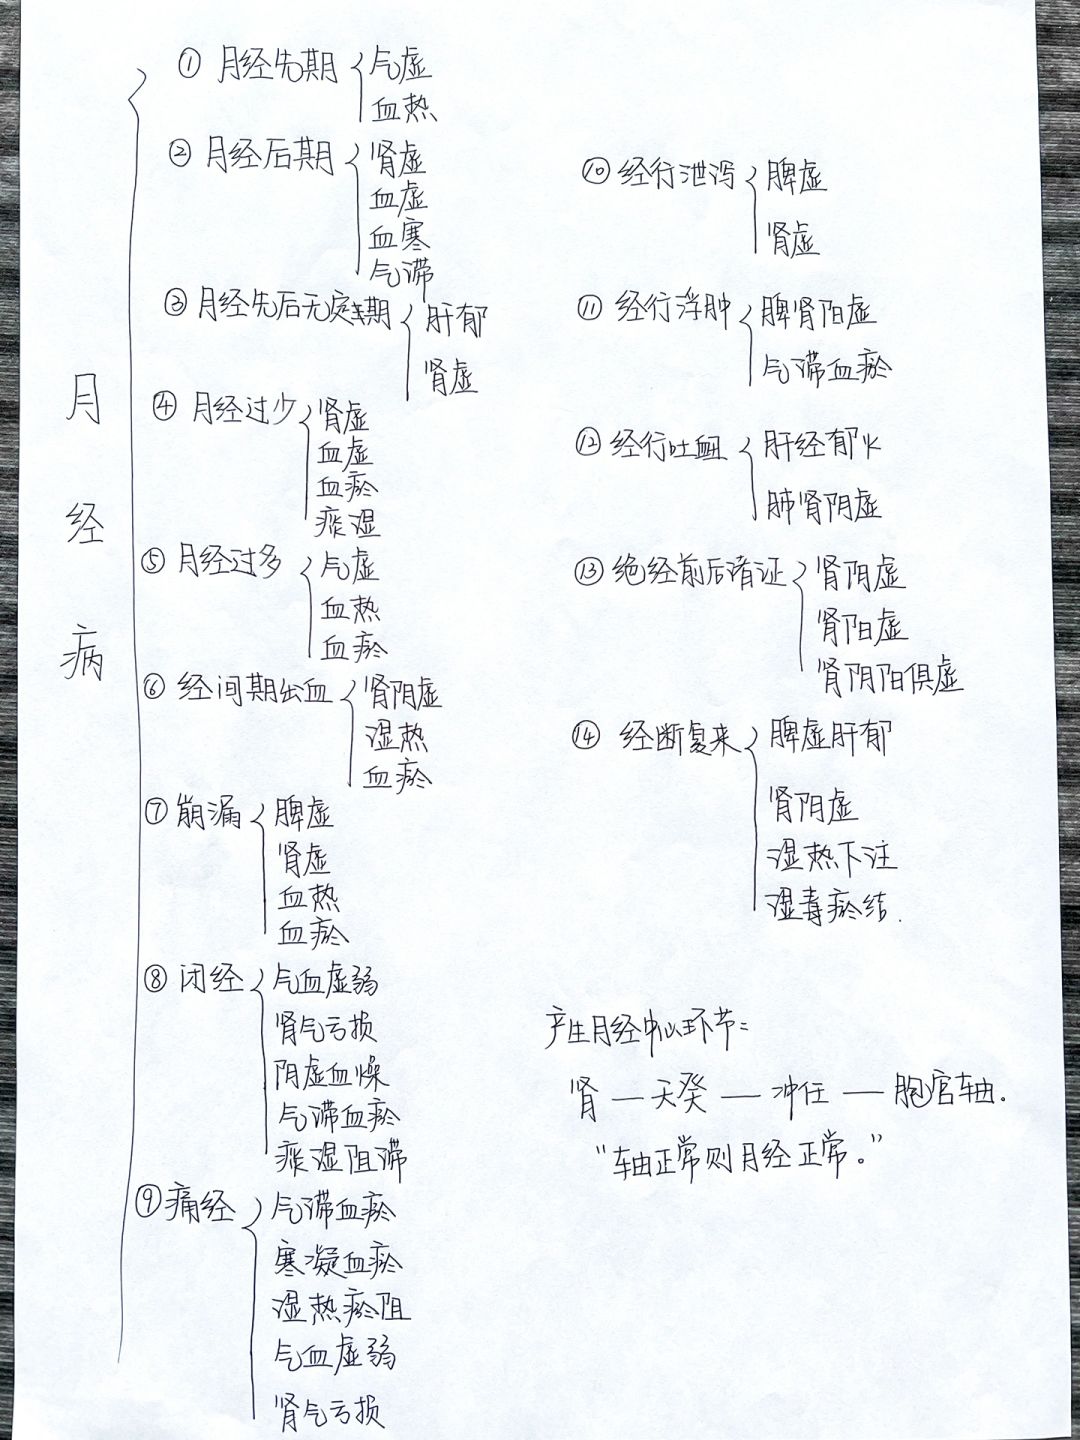 月经病
① 月经先期
气虚
血热
② 月经后期
肾虚
血虚
血寒
气滞
③ 月经先后无定期
肝郁
肾虚
④ 月经过少
肾虚
血虚
血瘀
痰湿
⑤ 月经过多
气虚
血热
血瘀
⑥ 经间期出血
肾阴虚
湿热
血瘀
⑦ 崩漏
脾虚
肾虚
血热
血瘀
⑧ 闭经
气血虚弱
肾气亏损
阴虚血燥
气滞血瘀
痰湿阻滞
⑨ 痛经
气滞血瘀
寒凝血瘀
湿热瘀阻
气血虚弱
肾气亏损
⑩ 经行泄泻
脾虚
肾虚
⑪ 经行浮肿
脾肾阳虚
气滞血瘀
⑫ 经行吐衄
肝经郁火
肺肾阴虚
⑬ 绝经前后诸证
肾阴虚
肾阳虚
肾阴阳俱虚
⑭ 经断复来
脾虚肝郁
肾阴虚
湿热下注
湿毒瘀结.
产生月经中心环节：
肾 — 天癸 — 冲任 — 胞宫轴.
“轴正常则月经正常。”